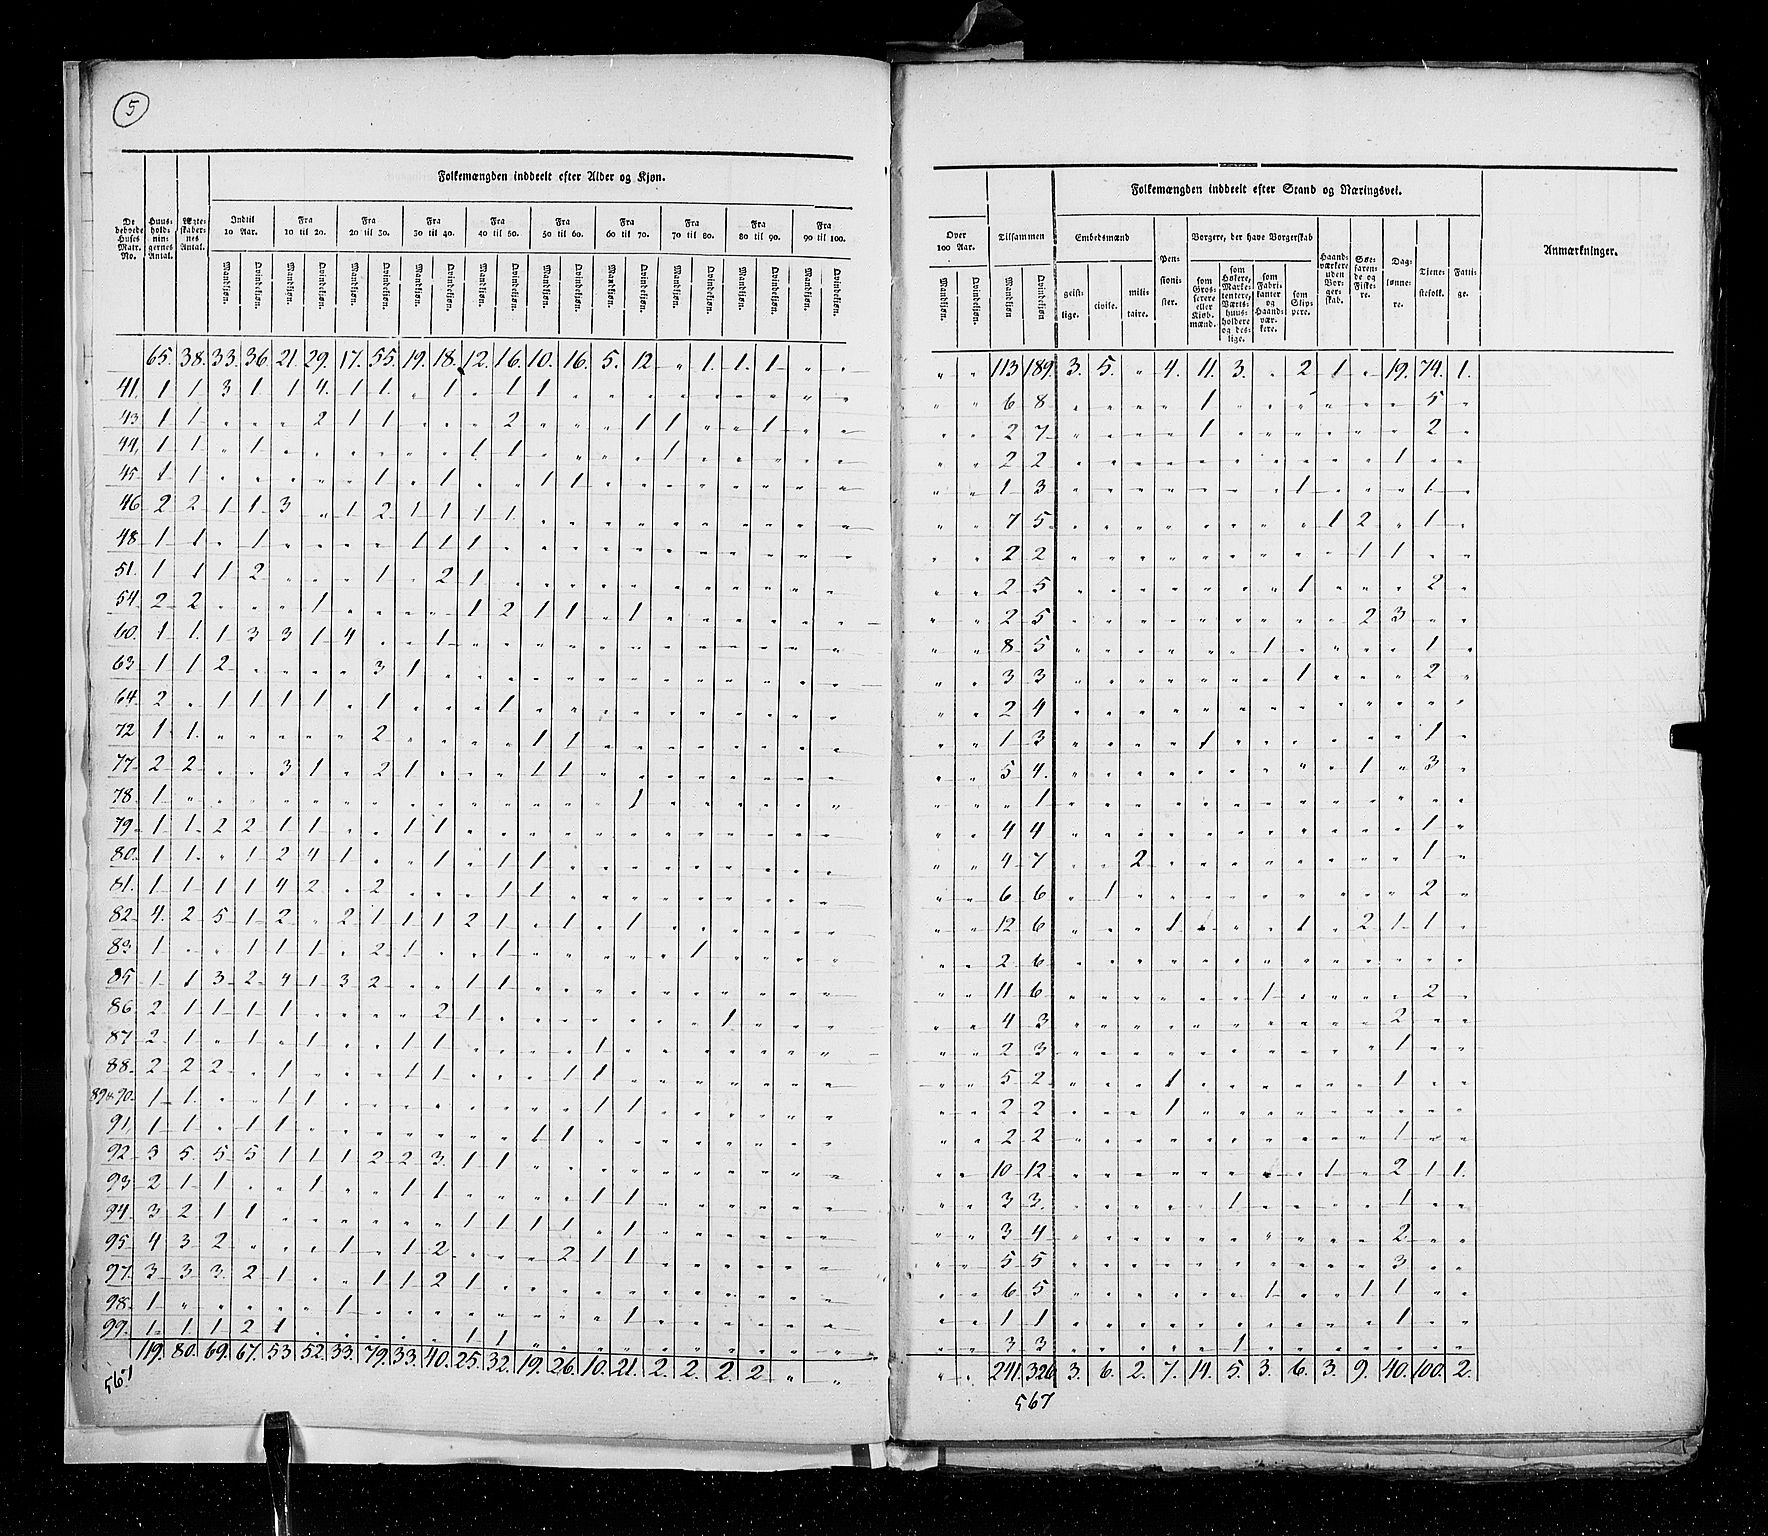 5
Folkemængden inddeelt efter Alder og Kjøn.
De bebvede Huses Matr. No. Huus-hold-nin-gernes Antal. Ægte-skaber-nes Antal. Indtil 10 Aar. Fra 10 til 20. Fra 20 til 30. Fra 30 til 40. Fra 40 til 50. Fra 50 til 60. Fra 60 til 70. Fra 70 til 80. Fra 80 til 90. Fra 90 til 100.
Mandkjøn. Qvindekjøn. Mandkjøn. Qvindekjøn. Mandkjøn. Qvindekjøn. Mandkjøn. Qvindekjøn. Mandkjøn. Qvindekjøn. Mandkjøn. Qvindekjøn. Mandkjøn. Qvindekjøn. Mandkjøn. Qvindekjøn. Mandkjøn. Qvindekjøn. Mandkjøn. Qvindekjøn.
65. 38. 33. 36. 21. 29. 17. 55. 19. 18. 12. 16. 10. 16. 5. 12 " 1. 1. 1. " "
41. 1 1 3 1 1 4. 1 1. " 1 " 1 1 " " " " " " " " "
43 1 1 " " " 2 1 1 " " " 2 " " " 1 1 " " 1 " "
44, 1 1 " 1 " " " " " " 1 1 " " " " 1 " " " " "
45 1 1 " " " " " 1 " 1 " " 1 1 " " " " " " " "
46 2 2 1 1 3 " 1 2 1 1 1 1 " " " " " " " " " "
48 1 1 " 1 " " " " 1 1 1 " " " " " " " " " " "
51. 1 1 1 2 " " " 1 " 2 1 " " " " " " " " " " "
54 2 2 " " " 1 " " " " 1 2 1 1 " 1 " " " " " "
60. 1 1. 1 3 3 1 4 " " 1 " " " " " " " " " " " "
63 1 1 2 " " " " 3 1 " " " " " " " " " " " " "
64 2 " 1 1 1 1 " 1 " " " 1 " " " " " " " " " "
72 1 1. " " " " " 2 " " " " 1 1 " " " " " " " "
77 2 2 " " 3 1 " 2 1 " " " 1 1 " " " " " " " "
78. 1 " " " " " " " " " " " " " " 1 " " " " " "
79. 1 1. 2 2 1 1 " " 1 1 " " " " " " " " " " " "
80. 1 1. " 1 2 4 1 " " 1 " 1 1 " " " " " " " " "
81. 1 1 1 1 4 2 " 2 " " " 1 1 " " " " " " " " "
82 4. 2 5 1 2 " 2 1 1 1 2 1 " 1 " 1 " " " " " "
83 1 " " 1 1 1 " 2 1 " " 1 " " " " " 1 " " " "
85 1 1 3 2 4 1 3 2 " " 1 1 " " " " " " " " " "
86 2 1 1 1 1 " " " " 2 1 " " " " " " " 1 " " "
87 2 1 " 1 " 1 " " 1 1 " " " " 1 " " " " " " "
88. 2 2 2 " 1 " " " 1 1 " " " 1 1 " " " " " " "
89 & 90 1 1. " " 1 1 " " " " " " " " 1 1 " " " " " "
91, 1 1 " 1 1 " " " " " " " 1 1 " " " " " " " "
92 5 5. 5 5 1 1 1 2 2 3. 1 1 " " " " " " " " " "
93 2 1 1 " " 1 " " 1 1 " " " " 1 1 " " " " " "
94. 3 2 1 1 " " " " " " 1 1 1 1 " 1 " " " " " "
95 4 3 2 " " " 1 " 1 2 " " " 2 1 1 " " " " " "
97. 3 3 3. 2 1 " " 1 1 2 1 " " " " " " " " " " "
98. 1 " " " " " 1 " " " " " " " " 1 " " " " " "
99. 1. 1. 1 2 1 " " " " " 1 1 " " " " " " " " " "
119. 80. 69. 67. 53 52. 33. 79. 33. 40. 25. 32. 19. 26. 10. 21. 2. 2. 2 2 " "
567
Folkemængden inddeelt efter Stand og Næringsvei.
Over 100 Aar. Tilsammen Embedsmænd Pen-sioni-ster. Borgere, der have Borgerskab Haand-værkere uden Bor-ger-skab. Søe-faren-de og Fiske-re. Dag-lønne-re. Tjene-stefolk. Fatti-ge. Anmærkninger.
Mandkjøn. Qvindekjøn. Mandkjøn Qvindekjøn geist-lige. civile. mili-taire. som Gros-serere eller Kjøb-mænd. som Høkere, Marke-tentere, Værts-huus-holdere og des-lige. som Fabri-kanter og Haand-vær-kere. som Skip-pere.
" " 113 189. 3. 5. " 4. 11. 3. " 2 1 " 19. 74. 1.
" " 6 8 " " " " 1 " " " " " " 5 "
" " 2 7 " " " " 1 " " " " " " 2 "
" " 2 2 " " " " " " " " " " 1 " "
" " 1 3 " " " " " " " 1 " " " 1 "
" " 7 5 " " " " " " " " 1 2 " 1 "
" " 2 2 " " " " " " " " " 1 1 " "
" " 2 5 " " " " " " " 1 " " " 2 "
" " 2 5 " " " " " " " " " 2 3 " "
" " 8 5 " " " " " " 1 " " " " 1 "
" " 3 3 " " " " " " " 1 " " " 2 "
" " 2 4 " " " " " " " " " " " " "
" " 1 3 " " " " 1 " " " " " " 1 "
" " 5 4. " " " " " " " " " 1 " 3 "
" " " 1 " " " " " " " " " " " " "
" " 4 4 " " " " " " " " " " " 1 "
" " 4 7 " " 2 " " " " " " " " 1 "
" " 6 6 " 1 " " " " " " " " " 2 "
" " 12 6 " " " 1 " " " 1 " 2 1 1 "
" " 2 6 " " " " " " " " " " " " "
" " 11 6 " " " " " " 1 " " " " 2 "
" " 4 3 " " " " " " " " " " 2 " "
" " 2 3 " " " " " " " " " " 1 " "
" " 5 2 " " " 1 " " " " " " 1 " "
" " 2 2 " " " 1 " " " " " " " " "
" " 2 2 " " " " " " " " " " 1 " "
" " 10 12 " " " " " " " " 1 " 2 1 1.
" " 3 3. " " " " " 1 " " " " 1 " "
" " 3 4 " " " " " " " " " " 2 " "
" " 5 5 " " " " " " " " " " 3 " "
" " 6 5 " " " " " " 1 " " 1 1 " "
" " 1 1 " " " " " " " " " " 1 " "
" " 3 3 " " " " " 1 " " " " " " "
" " 241. 326 3. 6. 2. 7. 14. 5. 3. 6. 3. 9. 40. 100. 2.
567